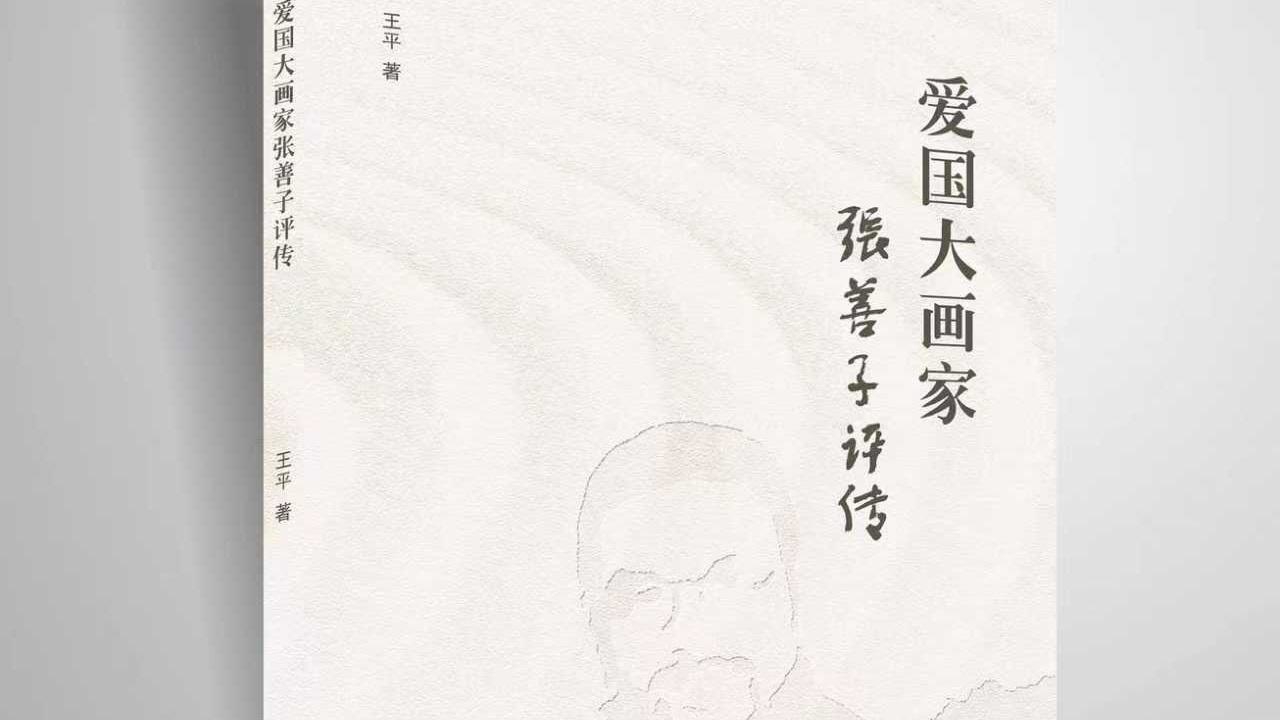 爱国大画家
張善子评传
王平 著
爱国大画家张善子评传
王平 著